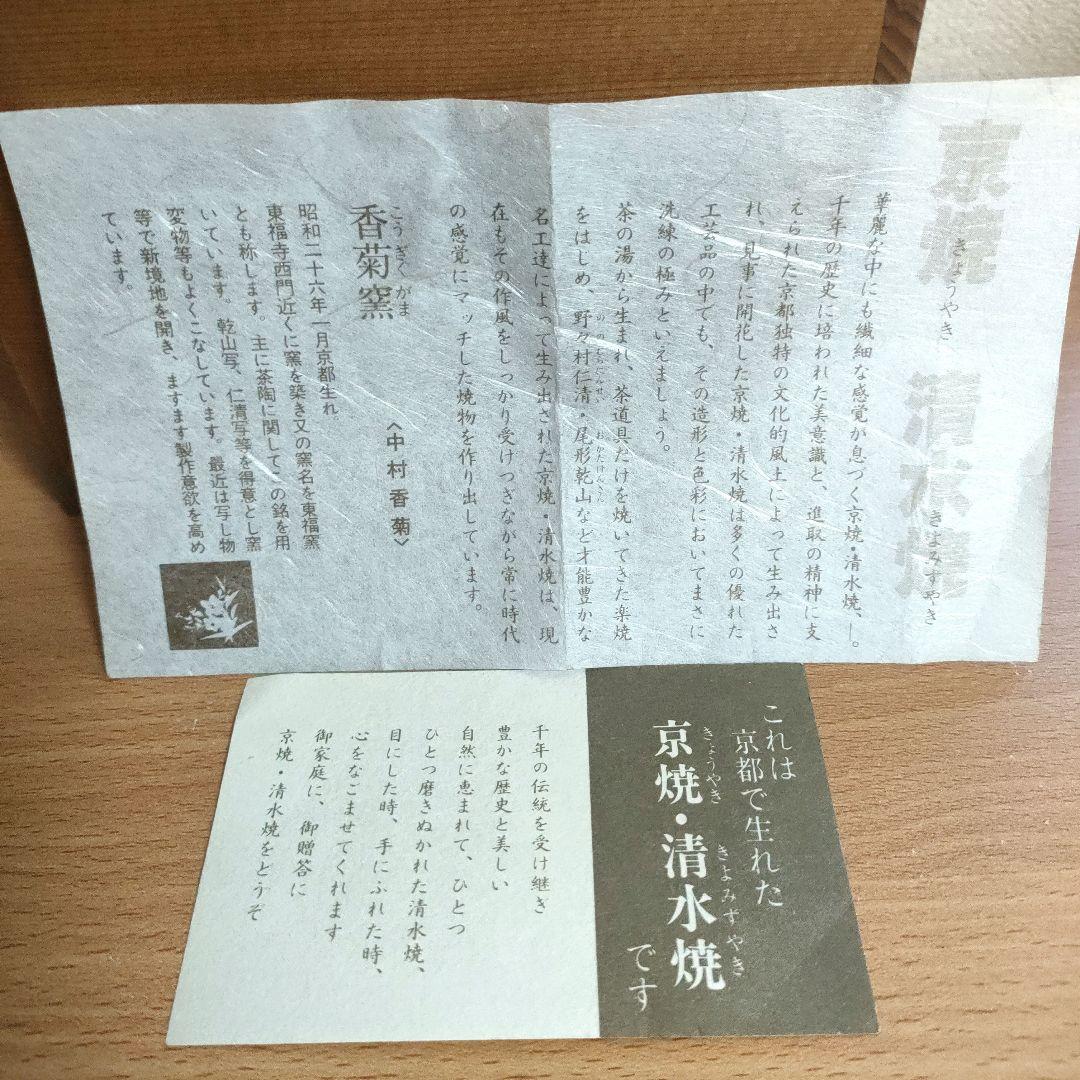 京焼 清水焼
きょうやき きよみずやき
華麗な中にも繊細な感覚が息づく京焼・清水焼、―。
千年の歴史に培われた美意識と、進取の精神に支
えられた京都独特の文化的風土によって生み出さ
れ、見事に開花した京焼・清水焼は多くの優れた
工芸品の中でも、その造形と色彩においてまさに
洗練の極みといえましょう。
茶の湯から生まれ、茶道具だけを焼いてきた楽焼
をはじめ、野々村仁清・尾形乾山など才能豊かな
ののむらにんせい おがたけんざん
名工達によって生み出された京焼・清水焼は、現
在もその作風をしっかり受けつぎながら常に時代
の感覚にマッチした焼物を作り出しています。
香菊窯
こうぎくがま
〈中村香菊〉
昭和二十六年一月京都生れ
東福寺西門近くに窯を築き又の窯名を東福窯
とも称します。主に茶陶に関して の銘を用
いています。乾山写、仁清写等を得意とし窯
変物等もよくこなしています。最近は写し物
等で新境地を開き、ますます製作意欲を高め
ています。
これは
京都で生れた
京焼・清水焼
きょうやき きよみずやき
です
千年の伝統を受け継ぎ
豊かな歴史と美しい
自然に恵まれて、ひとつ
ひとつ磨きぬかれた清水焼、
目にした時、手にふれた時、
心をなごませてくれます
御家庭に、御贈答に
京焼・清水焼をどうぞ